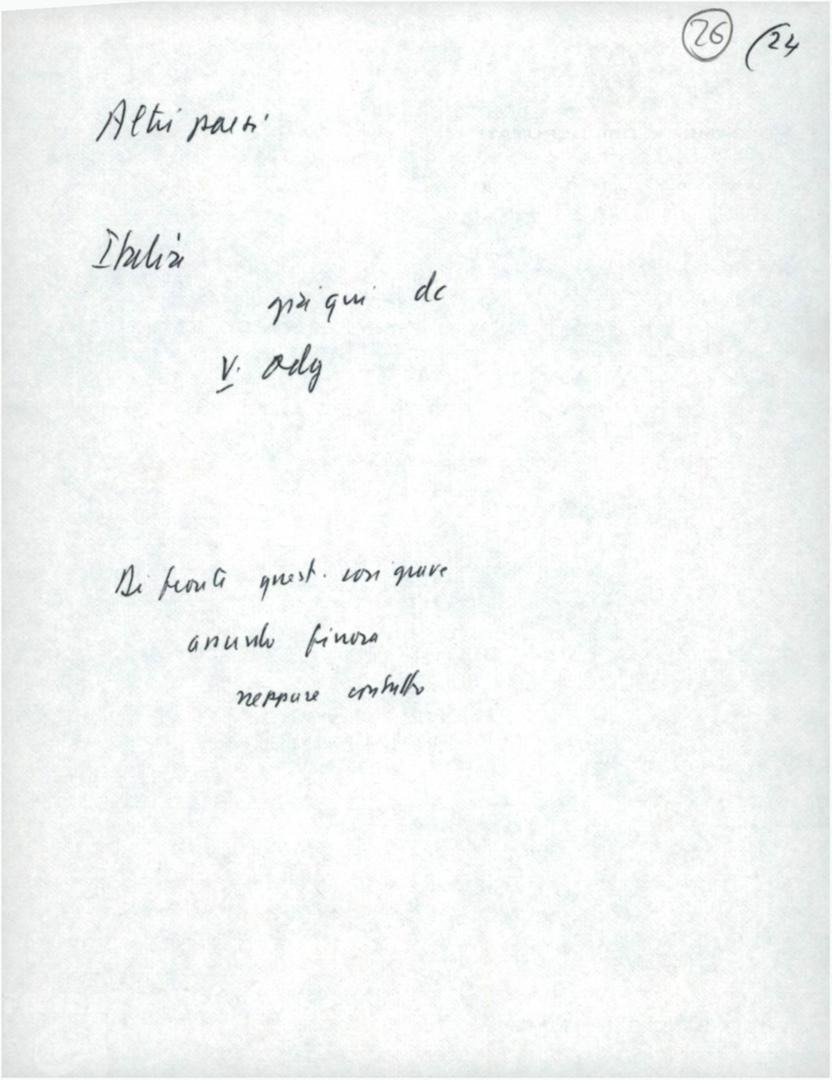 26 (24
Altri paesi
Italia
già qui dc
V. odg
Di fronte quest. così grave
assurdo finora
neppure consulto